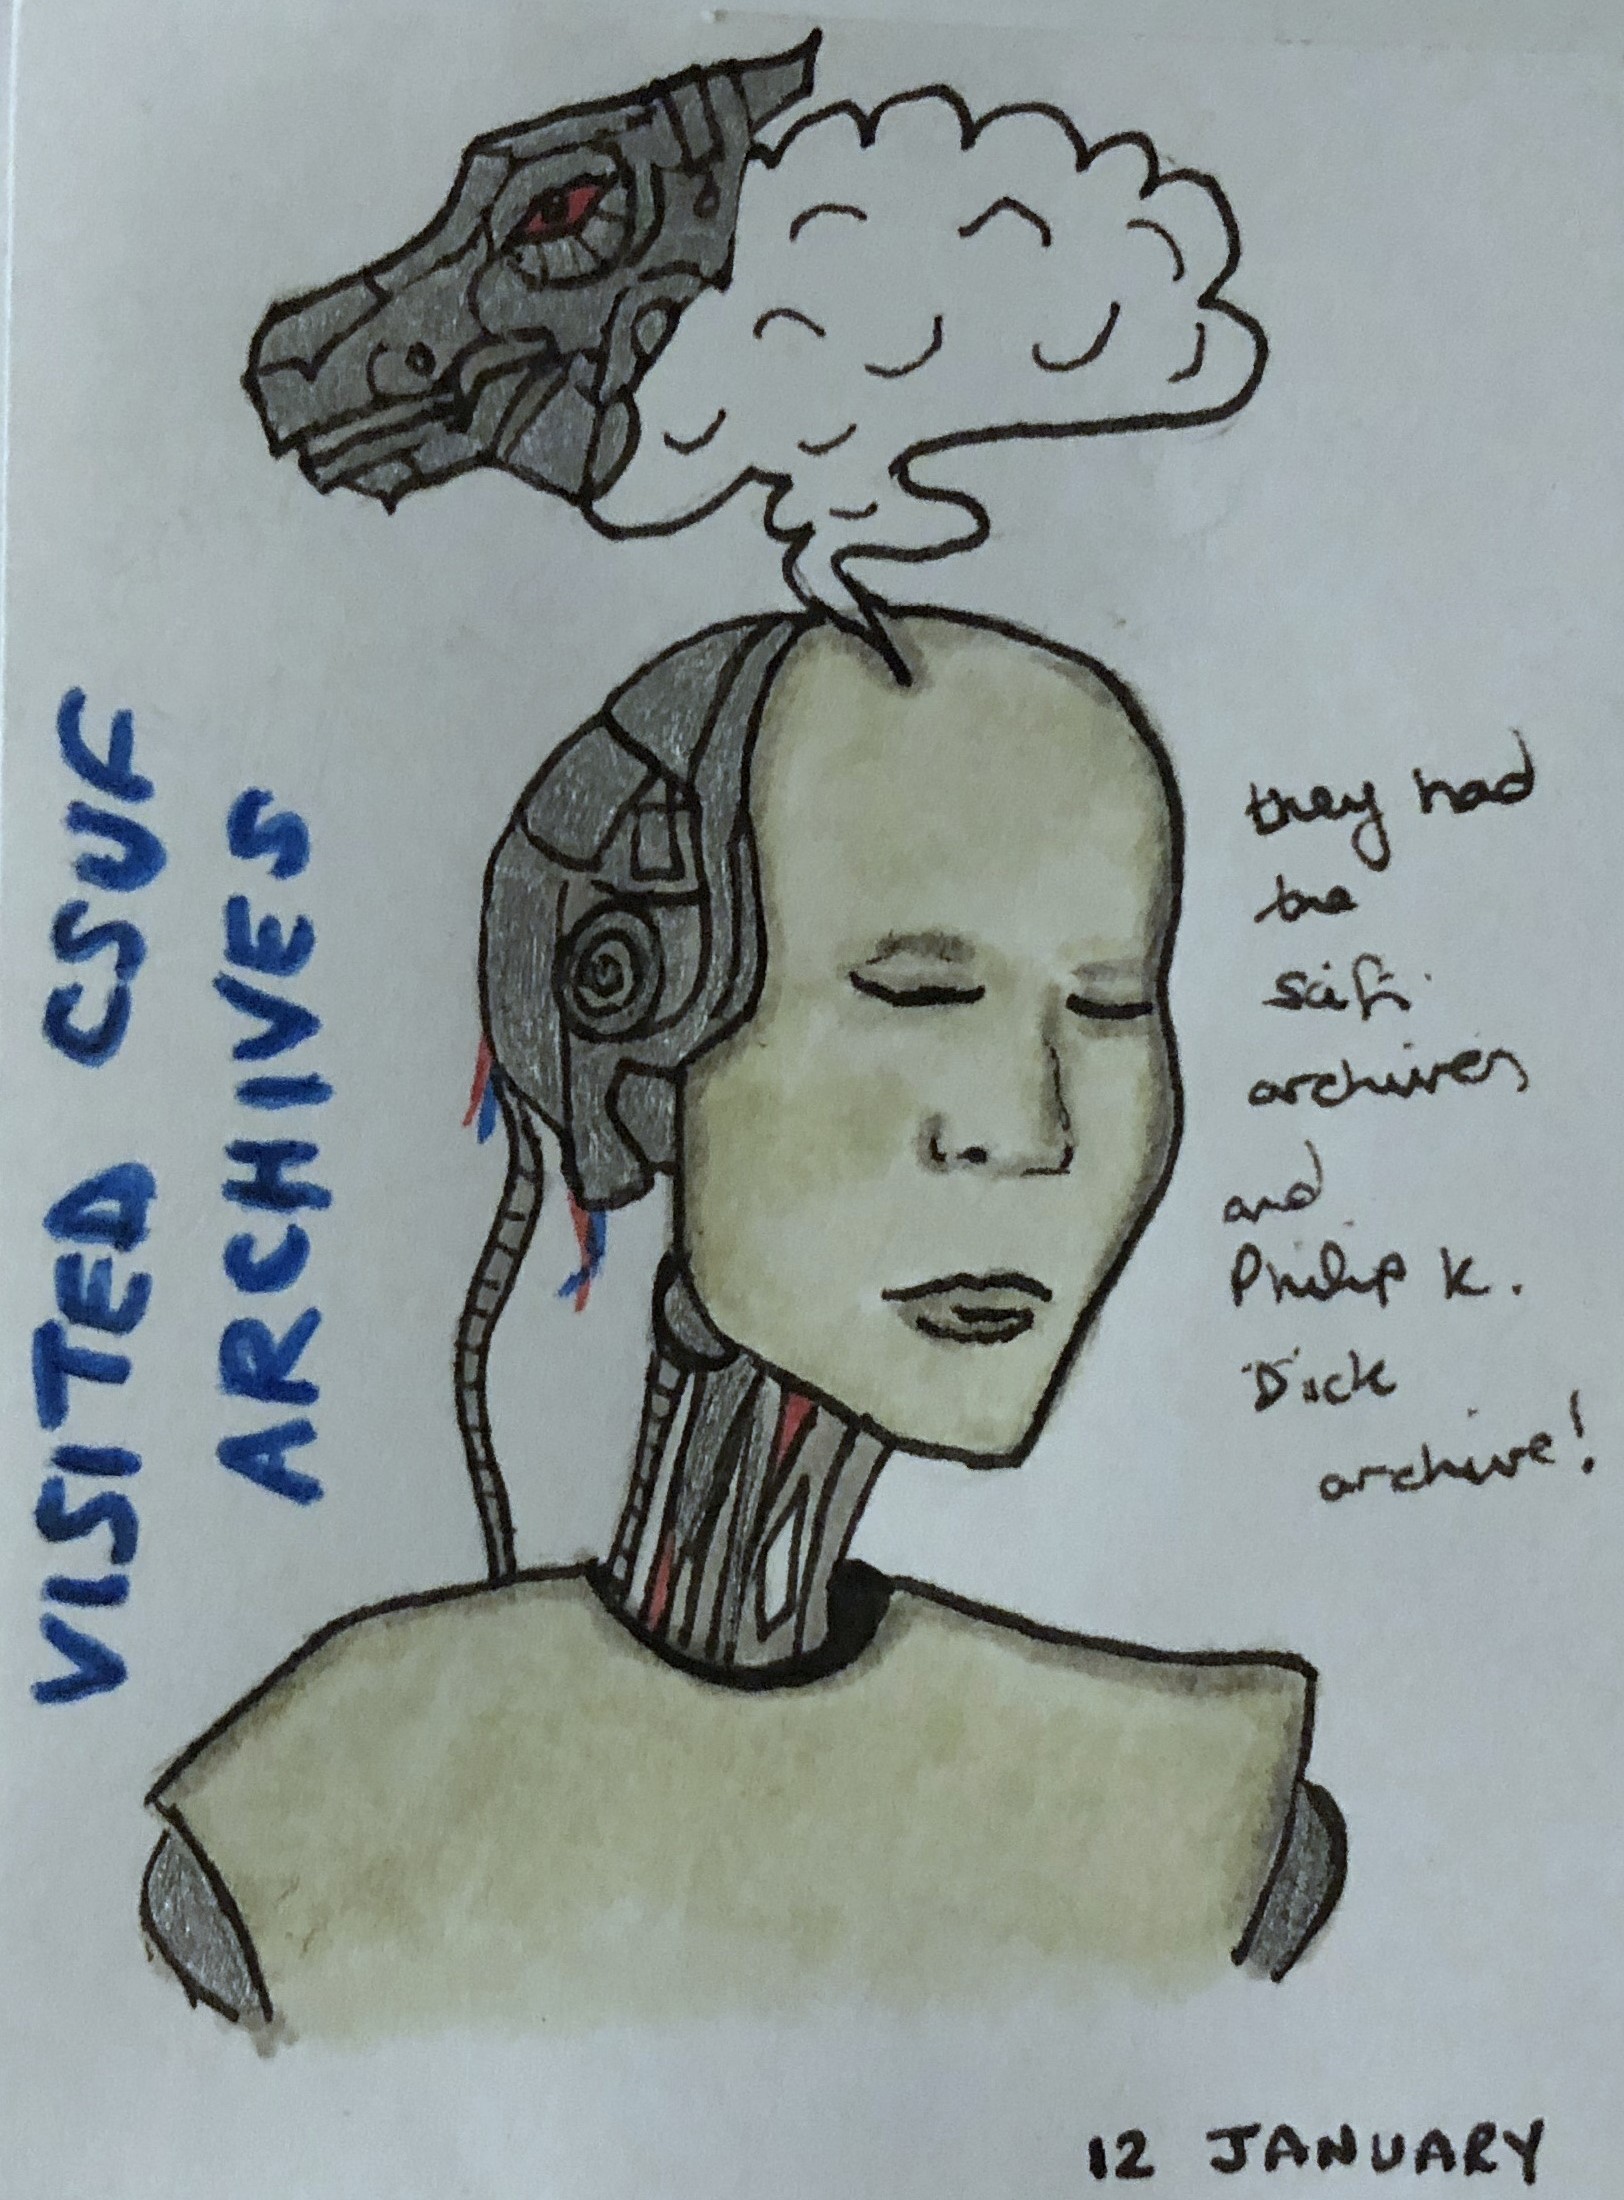 VISITED CSUF
ARCHIVES
they had
the
scifi
archives
and
Philip K.
Dick
archive!
12 JANUARY